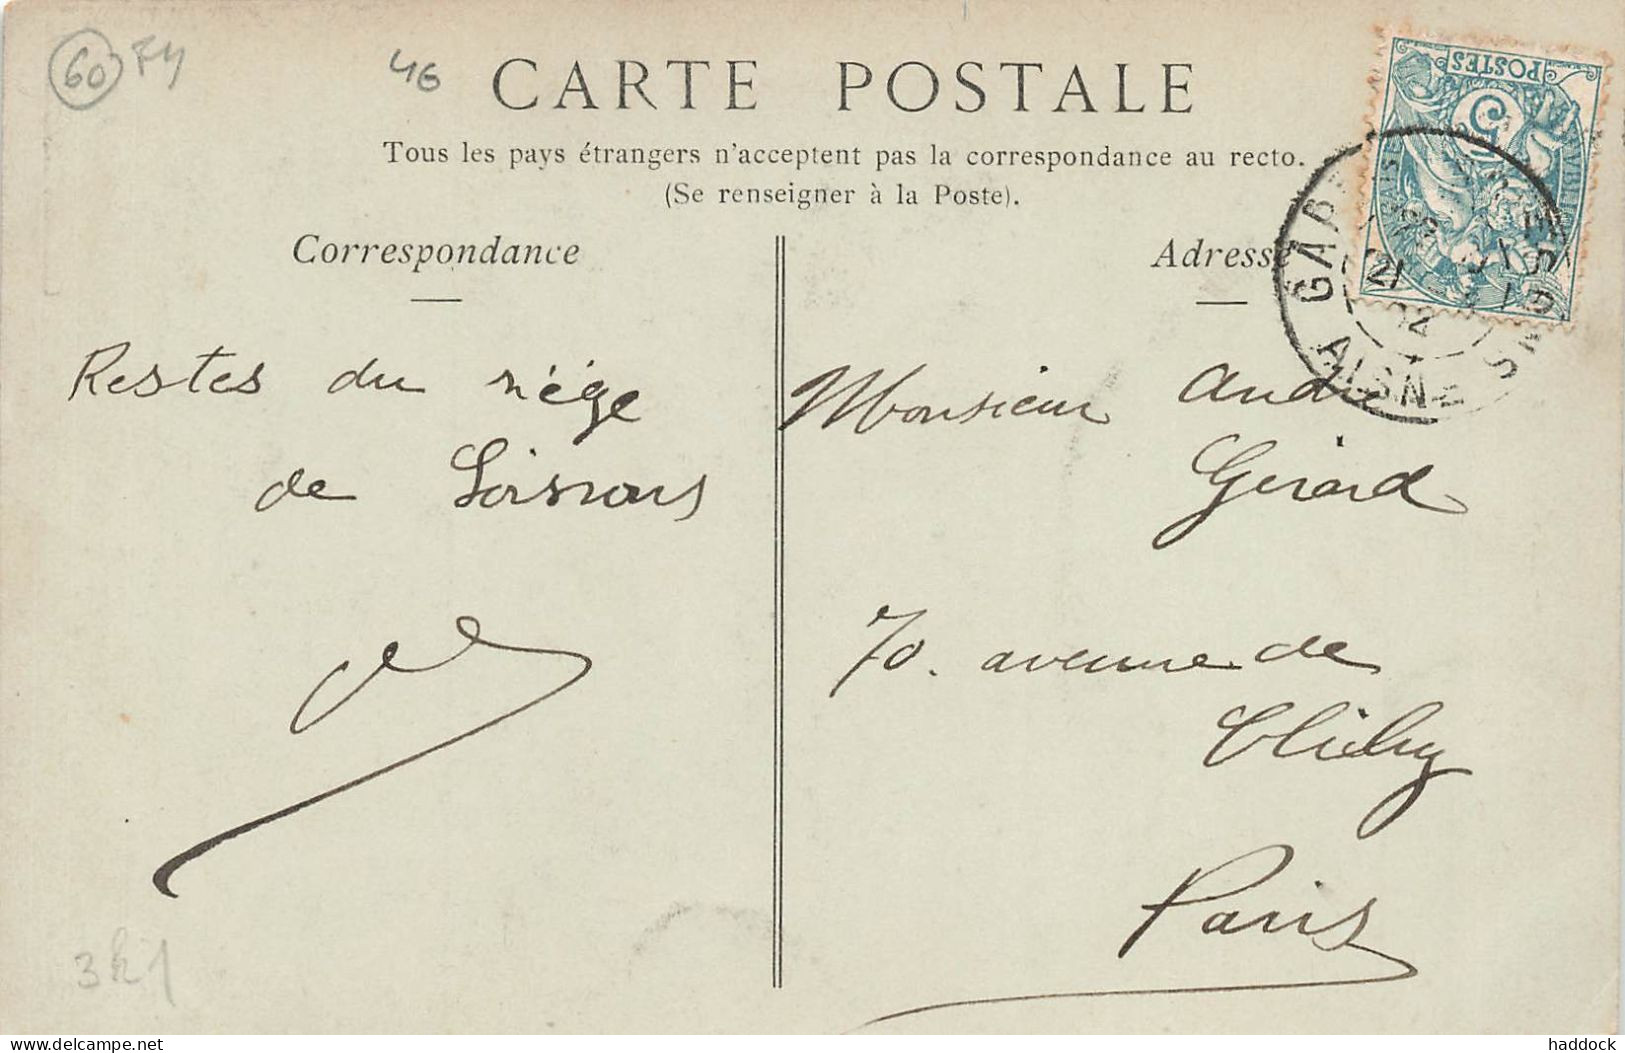 60 F4
46
CARTE POSTALE
Tous les pays étrangers n'acceptent pas la correspondance au recto.
(Se renseigner à la Poste).
POSTES
5
AISNE
Correspondance
Adresse
Restes du siége
de Soissons
Monsieur André
Gérard
70. avenue de
Clichy
Paris
delcampe.net
haddock